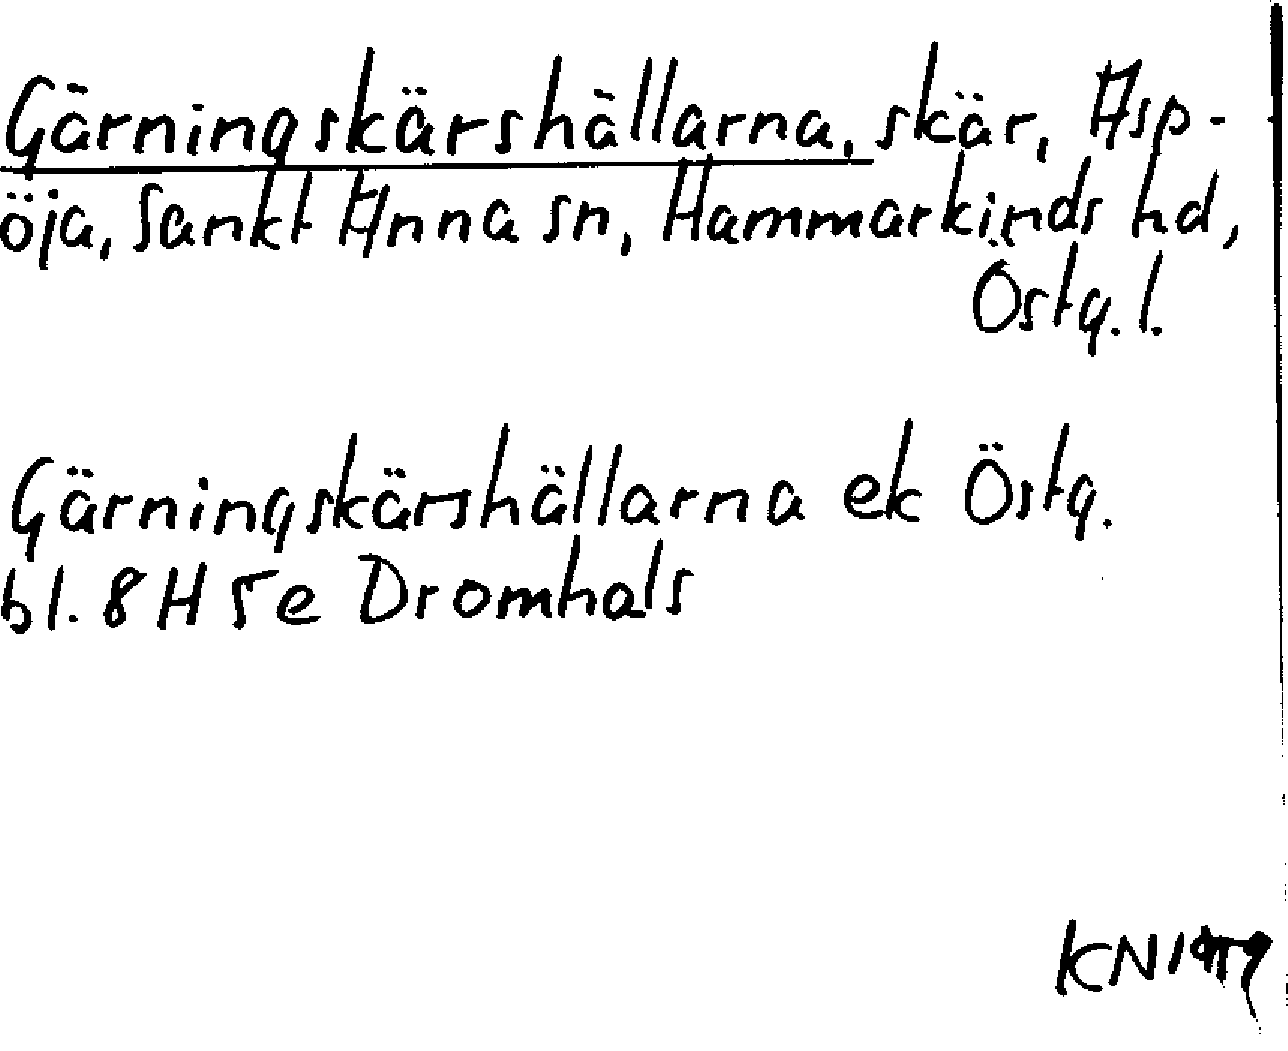 Gärningskärshällarna, skär, Asp-
öja, Sankt Anna sn, Hammarkinds hd,
Östg. l.
Gärningskärshällarna ek Östg.
bl. 8 H 5e Dromhals
KN